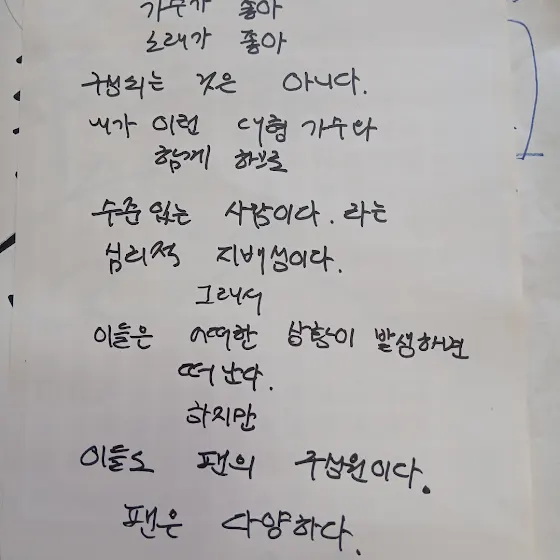 가수가 좋아
노래가 좋아
구성되는 것은 아니다.
내가 이런 대형 가수와
함께 하므로
수준 있는 사람이다. 라는
심리적 지배성이다.
그래서
이들은 어떠한 상황이 발생하면
떠난다.
하지만
이들도 팬의 구성원이다.
팬은 다양하다.